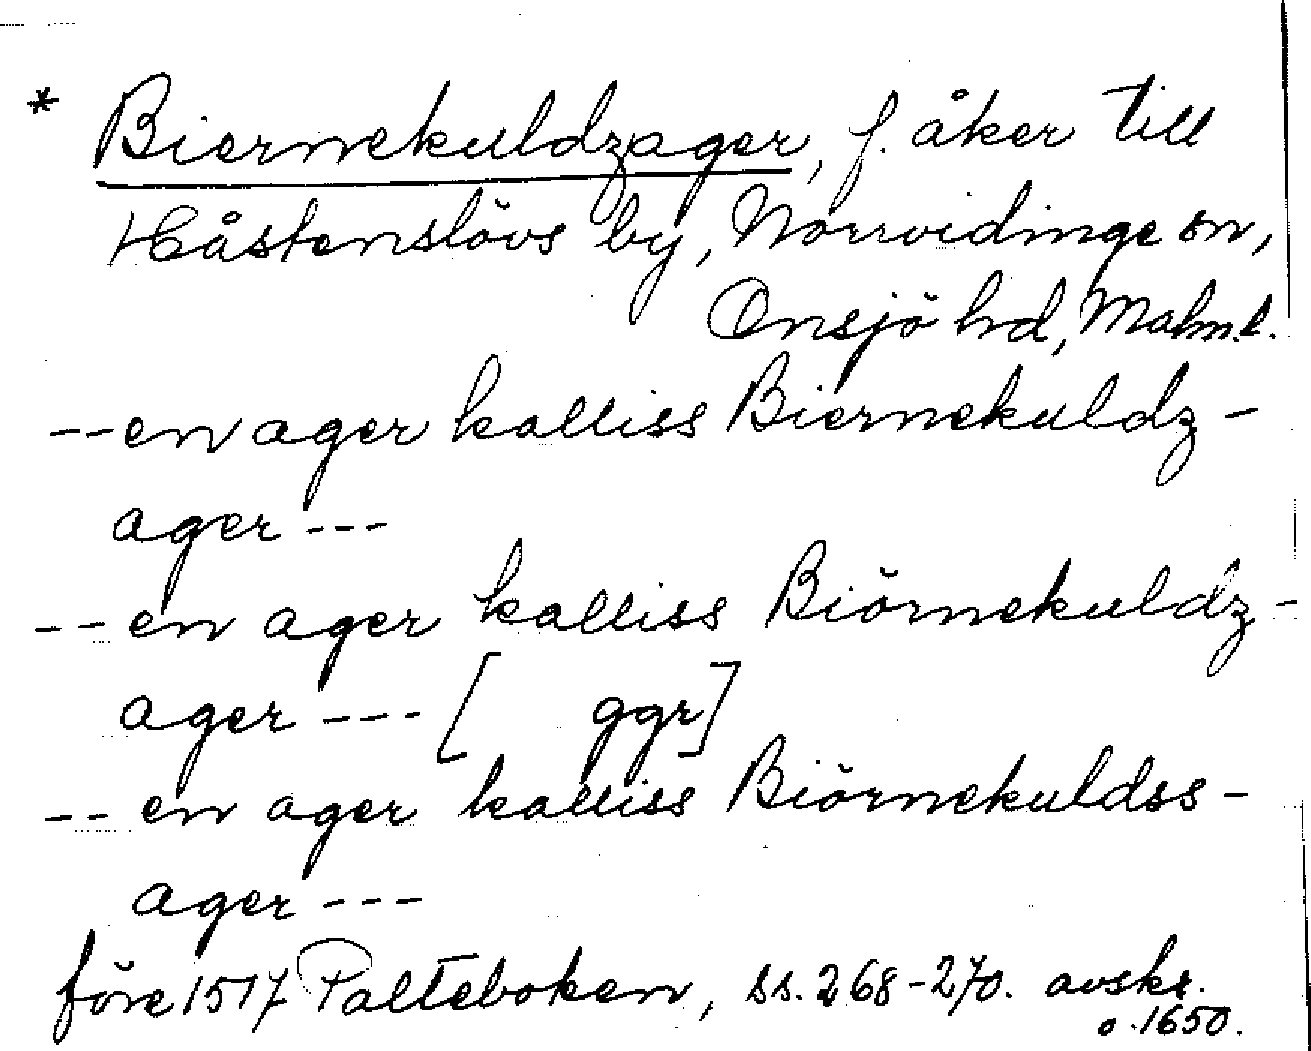 * Biernekuldzager, f. åker till
Håstenslövs by, Norrvidinge sn,
Onsjö hd, Malm.l.
-- en ager kalliss Biernekuldz-
ager ---
-- en ager kalliss Biörnekuldz-
ager --- [ ggr]
-- en ager kalliss Biörnekuldss-
ager ---
före 1517 Palteboken, ss. 268-270. avskr.
o. 1650.